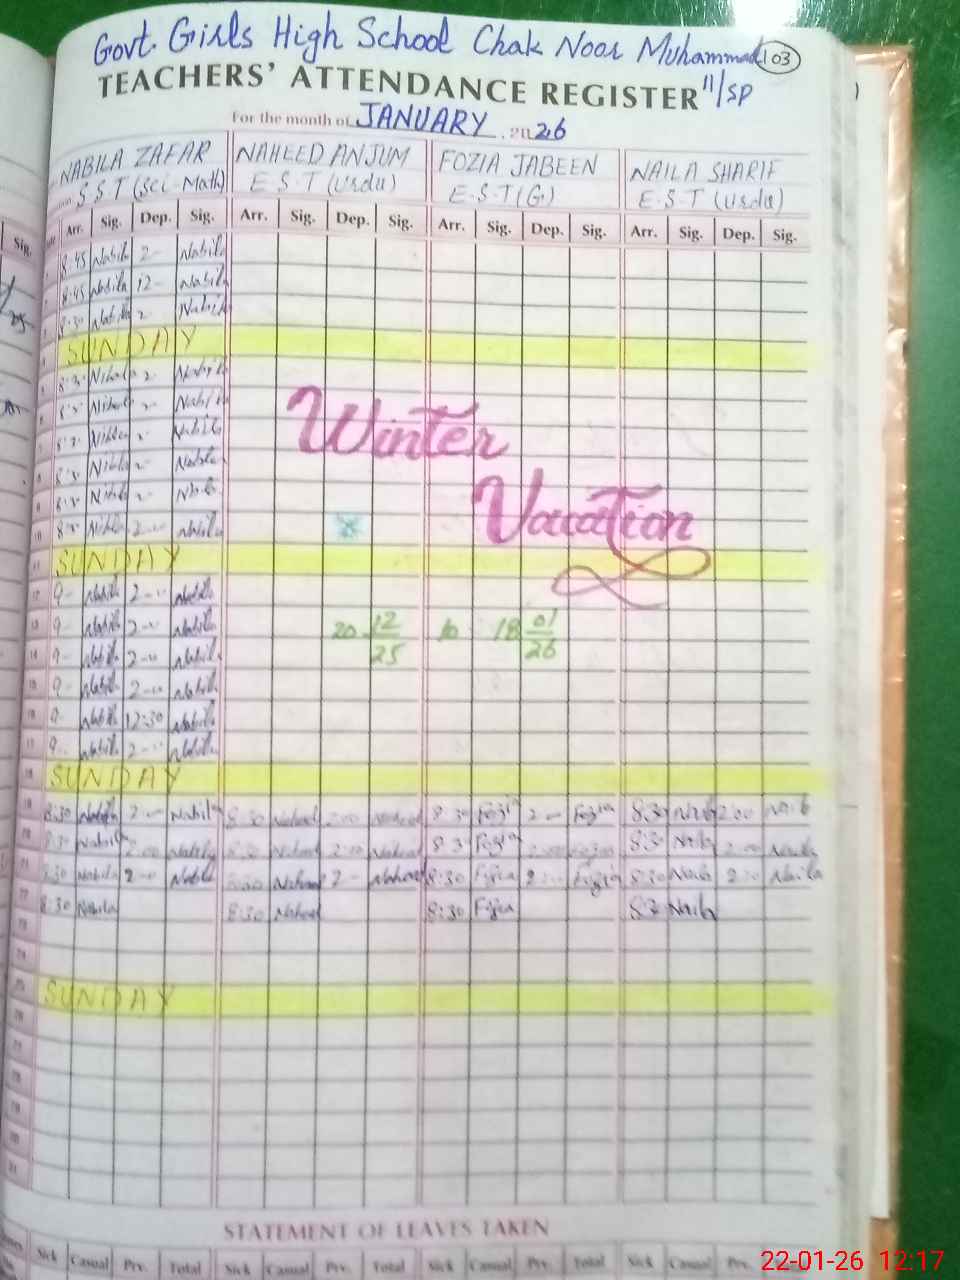 Govt. Girls High School Chak Noor Muhammad 103
TEACHERS' ATTENDANCE REGISTER 11/SP
For the month of JANUARY 2026
NABILA ZAFAR NAHEED ANJUM FOZIA JABEEN NAILA SHARIF
S.S.T (Sci-Math) E.S.T (Urdu) E.S.T (G) E.S.T (Urdu)
Arr. Sig. Dep. Sig. Arr. Sig. Dep. Sig. Arr. Sig. Dep. Sig. Arr. Sig. Dep. Sig.
8:45 Nabila 2- Nabila
8:45 Nabila 12- Nabila
8:30 Nabila 2 Nabila
SUNDAY
Nabila 2- Nabila
Nabila 2- Nabila
Winter
Nabila 2- Nabila
Nabila 2- Nabila
Nabila 2- Nabila
Vacation
Nabila 2- Nabila
11 SUNDAY
12 9- Nabila 2- Nabila
13 9- Nabila 2- Nabila 20 12/25 to 18 01/26
14 9- Nabila 2- Nabila
15 9- Nabila 2- Nabila
16 9- Nabila 12:30 Nabila
17 9- Nabila 2- Nabila
18 SUNDAY
8:30 Nabila 2- Nabila 8:30 Naheed 2:00 Naheed 8:30 Fozia 2- Fozia 8:30 Naila 2:00 Naila
8:30 Nabila 2:00 Nabila 8:30 Naheed 2:00 Naheed 8:30 Fozia 2:00 Fozia 8:30 Naila 2:00 Naila
8:30 Nabila 2- Nabila 8:30 Naheed 2- Naheed 8:30 Fozia 2:00 Fozia 8:30 Naila 2:00 Naila
8:30 Nabila 8:30 Naheed 8:30 Fozia 8:30 Naila
SUNDAY
STATEMENT OF LEAVES TAKEN
Sick Casual Prv. Total Sick Casual Prv. Total Sick Casual Prv. Total Sick Casual Prv. Total
22-01-26 12:17